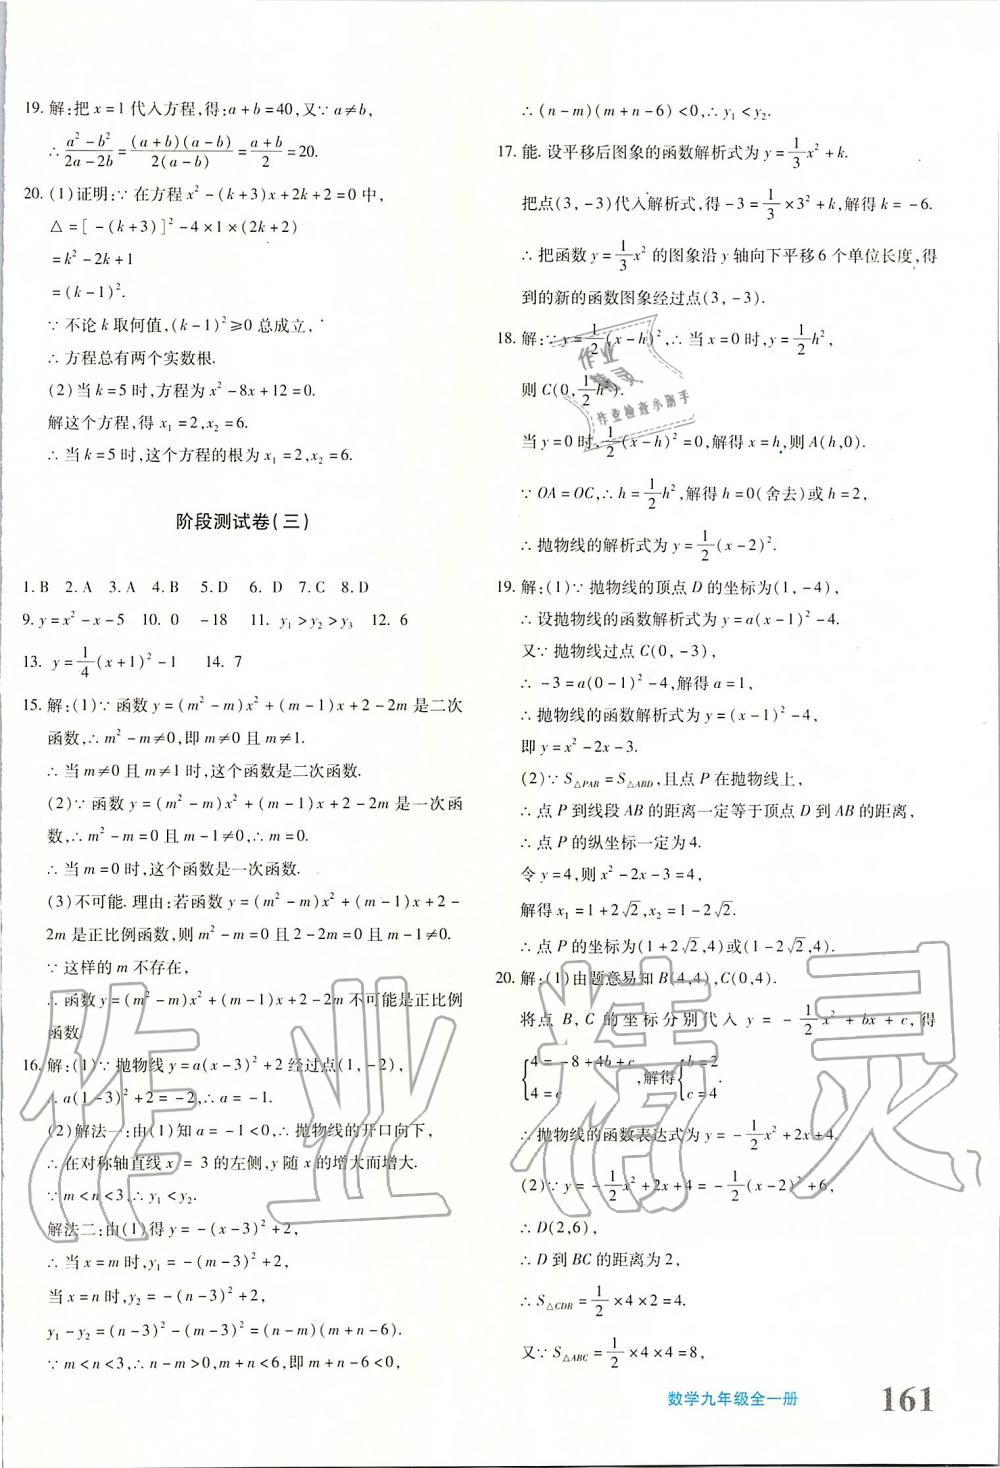 19. 解:把 x=1 代入方程,得:a+b=40,又∵a≠b,
∴(a²-b²)/(2a-2b)=(a+b)(a-b)/2(a-b)=(a+b)/2=20.
20. (1)证明:∵在方程 x²-(k+3)x+2k+2=0 中,
△=[-(k+3)]²-4×1×(2k+2)
=k²-2k+1
=(k-1)².
∵不论 k 取何值,(k-1)²≥0 总成立,
∴方程总有两个实数根.
(2)当 k=5 时,方程为 x²-8x+12=0.
解这个方程,得 x₁=2,x₂=6.
∴当 k=5 时,这个方程的根为 x₁=2,x₂=6.
阶段测试卷(三)
1. B 2. A 3. A 4. B 5. D 6. D 7. C 8. D
9. y=x²-x-5 10. 0 -18 11. y₁>y₂>y₃ 12. 6
13. y=1/4(x+1)²-1 14. 7
15. 解:(1)∵函数 y=(m²-m)x²+(m-1)x+2-2m 是二次
函数,∴m²-m≠0,即 m≠0 且 m≠1.
∴当 m≠0 且 m≠1 时,这个函数是二次函数.
(2)∵函数 y=(m²-m)x²+(m-1)x+2-2m 是一次函
数,∴m²-m=0 且 m-1≠0,∴m=0.
∴当 m=0 时,这个函数是一次函数.
(3)不可能. 理由:若函数 y=(m²-m)x²+(m-1)x+2-
2m 是正比例函数,则 m²-m=0 且 2-2m=0 且 m-1≠0.
∵这样的 m 不存在,
∴函数 y=(m²-m)x²+(m-1)x+2-2m 不可能是正比例
函数
16. 解:(1)∵抛物线 y=a(x-3)²+2 经过点(1,-2),
∴a(1-3)²+2=-2,∴a=-1.
(2)解法一:由(1)知 a=-1<0,∴抛物线的开口向下,
∴在对称轴直线 x=3 的左侧,y 随 x 的增大而增大.
∵m<n<3,∴y₁<y₂.
解法二:由(1)得 y=-(x-3)²+2,
∴当 x=m 时,y₁=-(m-3)²+2,
当 x=n 时,y₂=-(n-3)²+2,
y₁-y₂=(n-3)²-(m-3)²=(n-m)(m+n-6).
∵m<n<3,∴n-m>0,m+n<6,即 m+n-6<0,
∴(n-m)(m+n-6)<0,∴y₁<y₂.
17. 能. 设平移后图象的函数解析式为 y=1/3x²+k.
把点(3,-3)代入解析式,得-3=1/3×3²+k,解得 k=-6.
∴把函数 y=1/3x² 的图象沿 y 轴向下平移 6 个单位长度,得
到的新的函数图象经过点(3,-3).
18. 解:∵y=1/2(x-h)²,∴当 x=0 时,y=1/2h²,
则 C(0,1/2h²).
当 y=0 时,1/2(x-h)²=0,解得 x=h,则 A(h,0).
∵OA=OC,∴h=1/2h²,解得 h=0(舍去)或 h=2,
∴抛物线的解析式为 y=1/2(x-2)².
19. 解:(1)∵抛物线的顶点 D 的坐标为(1,-4),
∴设抛物线的函数解析式为 y=a(x-1)²-4.
又∵抛物线过点 C(0,-3),
∴-3=a(0-1)²-4,解得 a=1,
∴抛物线的函数解析式为 y=(x-1)²-4,
即 y=x²-2x-3.
(2)∵S△PAB=S△ABD,且点 P 在抛物线上,
∴点 P 到线段 AB 的距离一定等于顶点 D 到 AB 的距离,
∴点 P 的纵坐标一定为 4.
令 y=4,则 x²-2x-3=4,
解得 x₁=1+2√2,x₂=1-2√2.
∴点 P 的坐标为(1+2√2,4)或(1-2√2,4).
20. 解:(1)由题意易知 B(4,4),C(0,4).
将点 B,C 的坐标分别代入 y=-1/2x²+bx+c,得
{4=-8+4b+c, 4=c ,解得{b=2 c=4
∴抛物线的函数表达式为 y=-1/2x²+2x+4.
(2)∵y=-1/2x²+2x+4=-1/2(x-2)²+6,
∴D(2,6),
∴D 到 BC 的距离为 2,
∴S△CDB=1/2×4×2=4.
又∵S△ABC=1/2×4×4=8,
数学九年级全一册 161
作业精灵
作业检查小助手
作业精灵